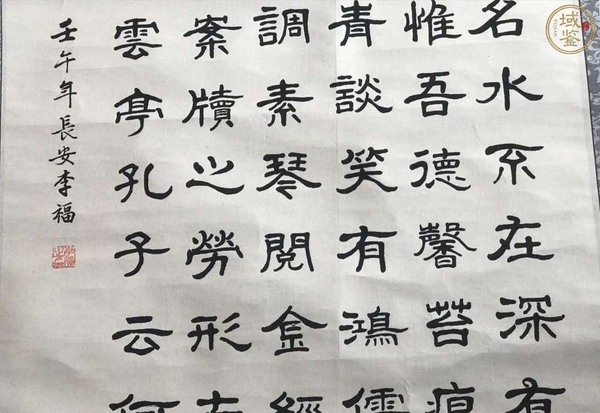 名水不在深有
惟吾德馨苔痕
青談笑有鴻儒
調素琴閱金經
案牘之勞形
雲亭孔子云何
壬午年長安李福
域鉴